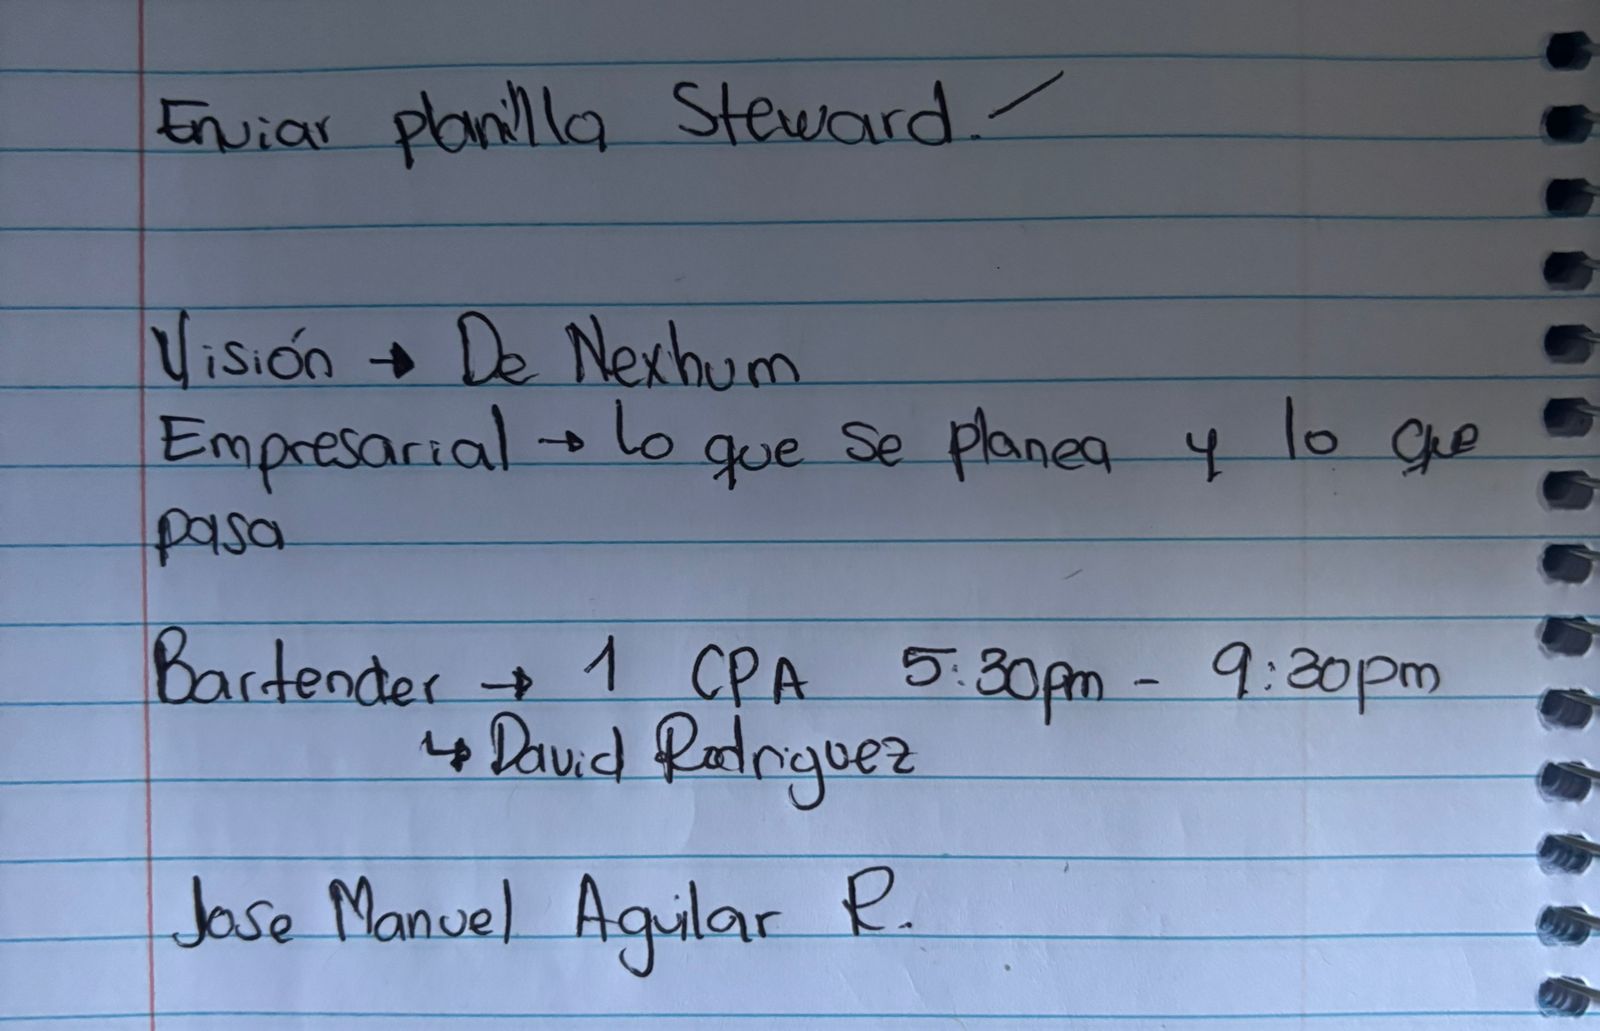 Enviar planilla Steward.
Visión → De Nexhum
Empresarial → lo que se planea y lo que
pasa
Bartender → 1 CPA 5:30pm - 9:30pm
↳ David Rodriguez
Jose Manuel Aguilar R.